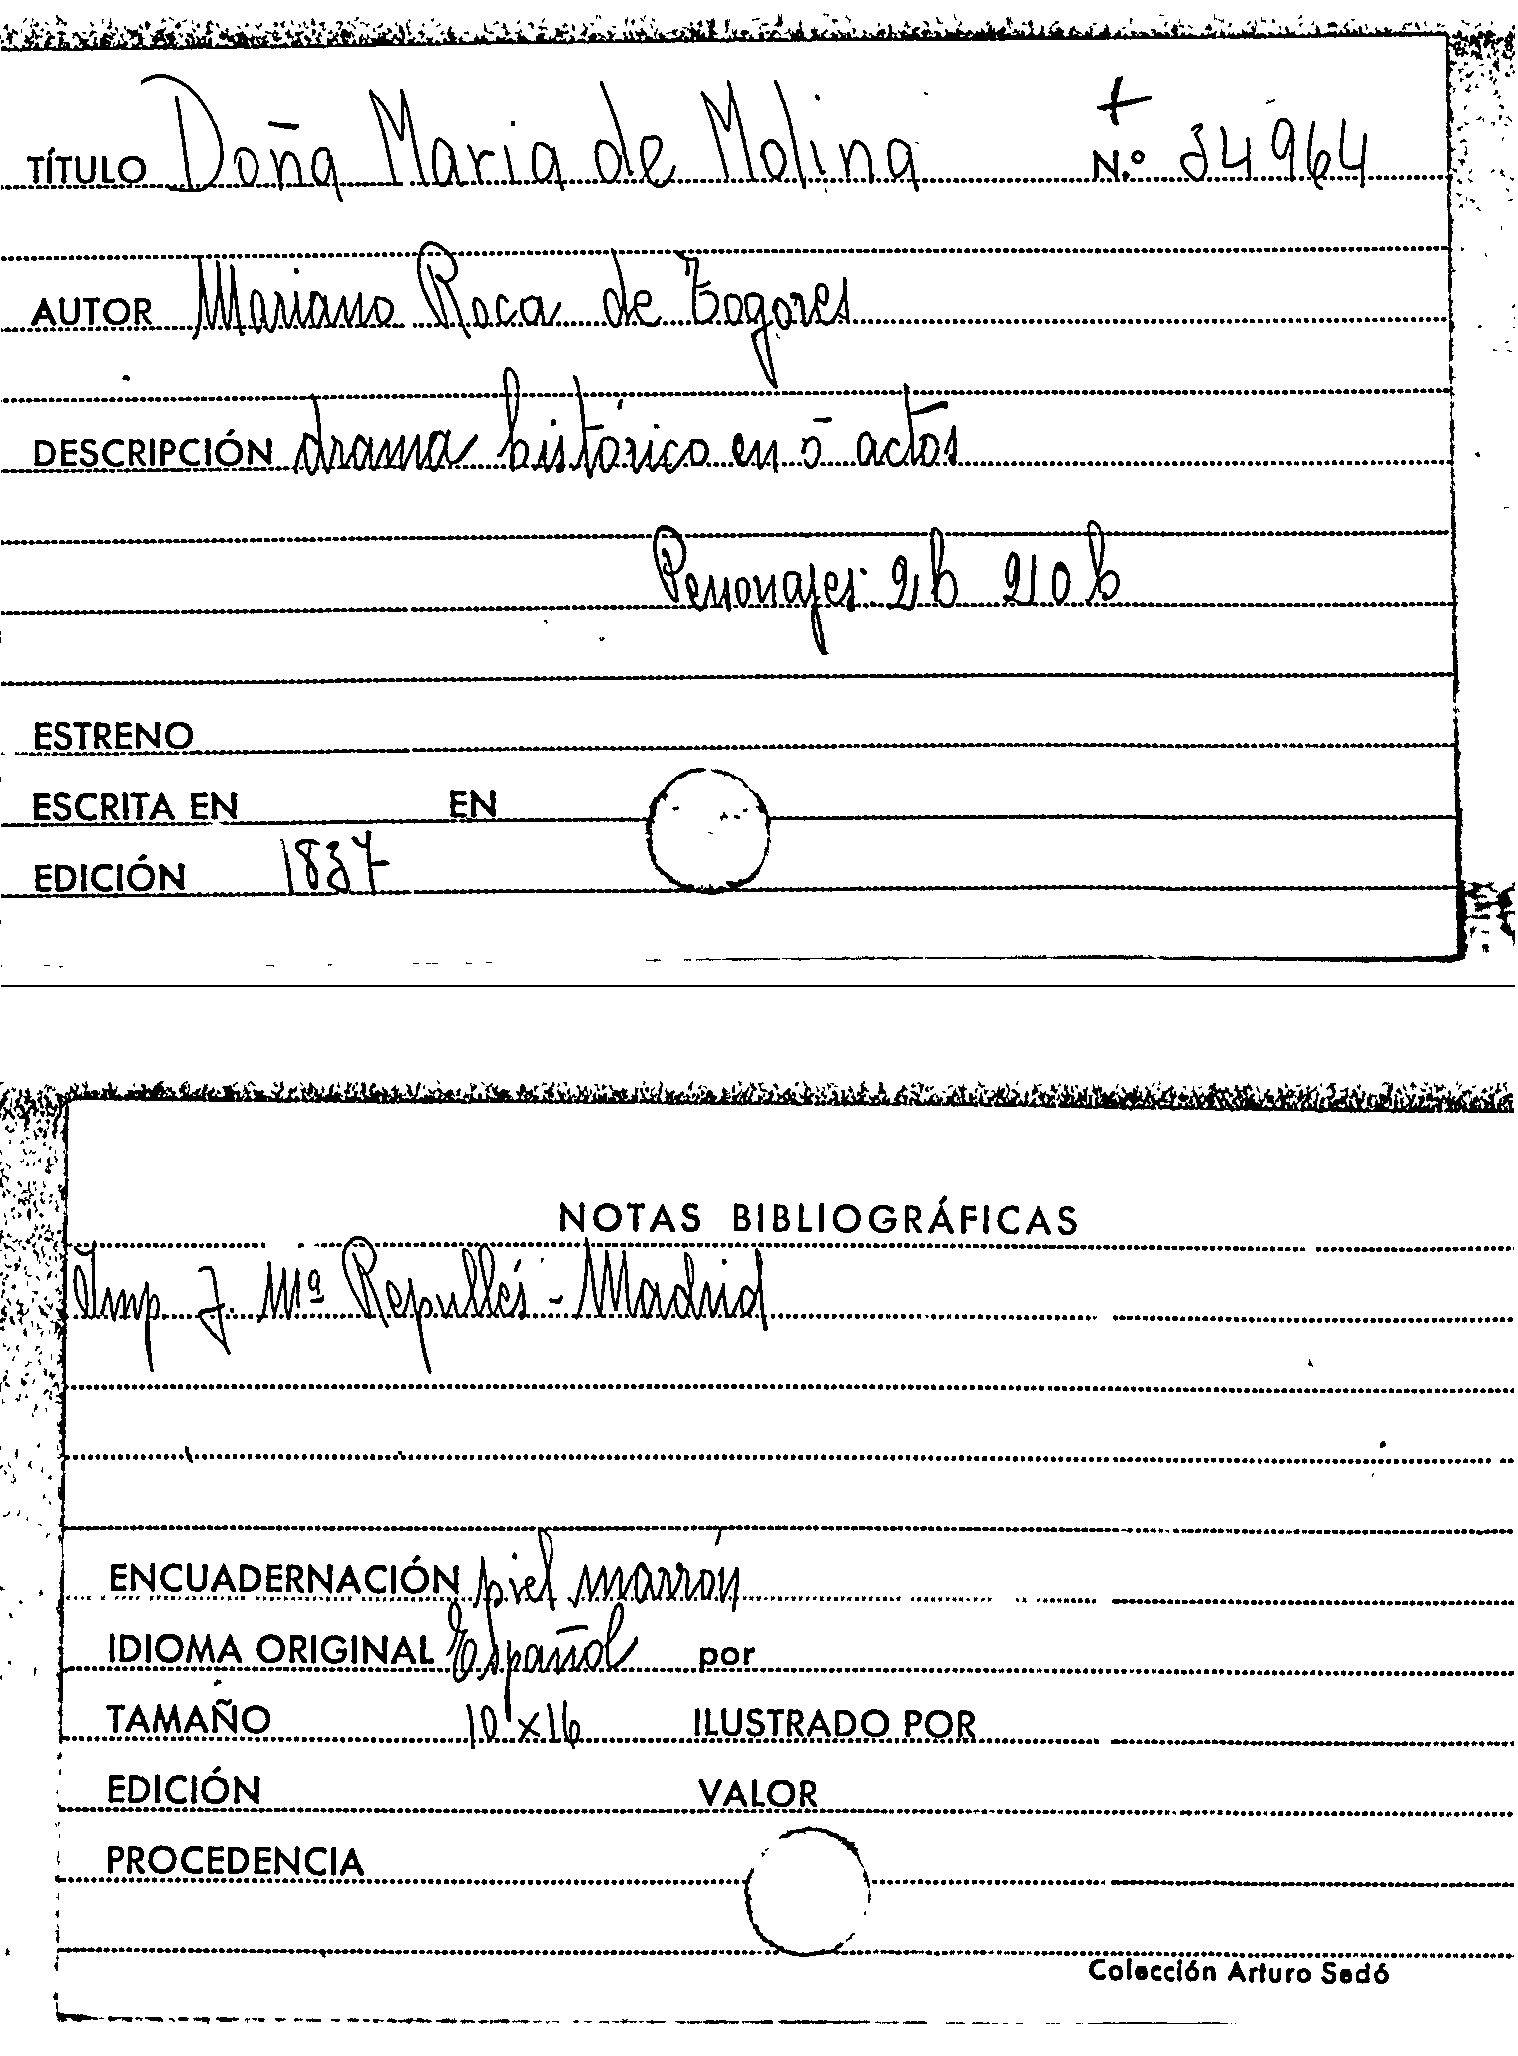 +
TÍTULO Doña Maria de Molina N.º 34964
AUTOR Mariano Roca de Togores
DESCRIPCIÓN drama histórico en 5 actos
Personajes: 2h 210h
ESTRENO
ESCRITA EN EN
EDICIÓN 1837
NOTAS BIBLIOGRÁFICAS
Imp J. Mª Repullés - Madrid
ENCUADERNACIÓN piel marrón
IDIOMA ORIGINAL Español por
TAMAÑO 10 x 16 ILUSTRADO POR
EDICIÓN VALOR
PROCEDENCIA
Colección Arturo Sedó